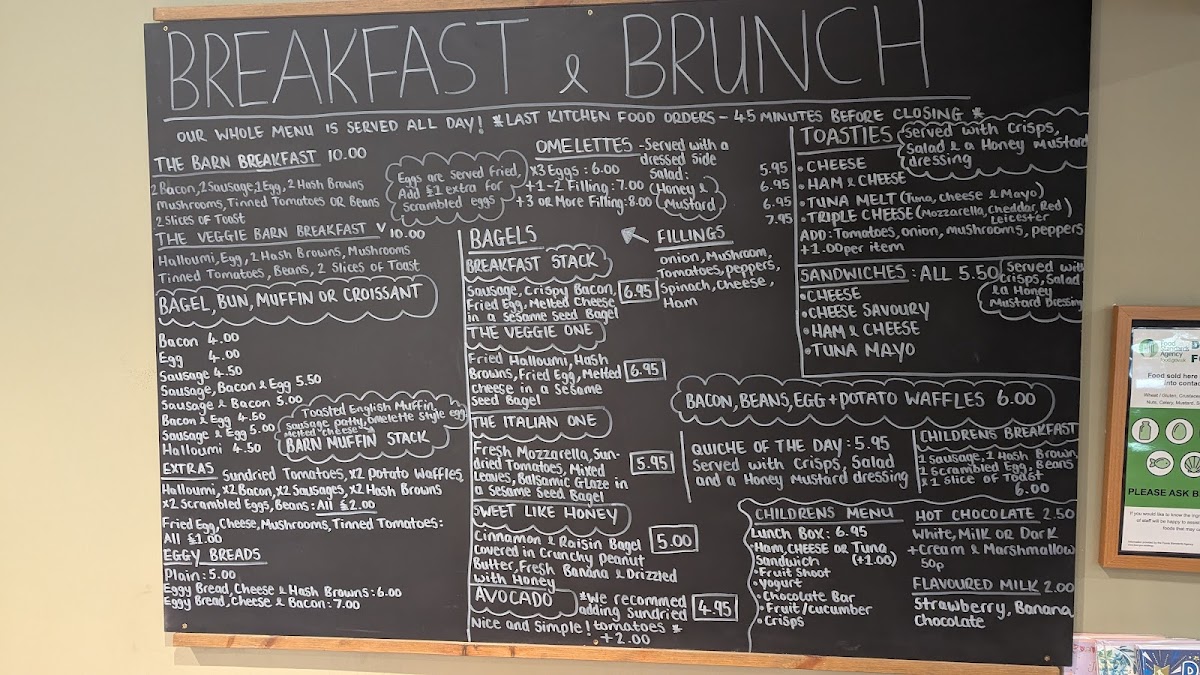 BREAKFAST & BRUNCH
OUR WHOLE MENU IS SERVED ALL DAY! *LAST KITCHEN FOOD ORDERS - 45 MINUTES BEFORE CLOSING *
THE BARN BREAKFAST 10.00
2 Bacon, 2 Sausage, 1 Egg, 2 Hash Browns
Mushrooms, Tinned Tomatoes OR Beans
2 Slices of Toast
Eggs are Served Fried,
Add £1 extra for
Scrambled eggs
THE VEGGIE BARN BREAKFAST V 10.00
Halloumi, Egg, 2 Hash Browns, Mushrooms
Tinned Tomatoes, Beans, 2 Slices of Toast
BAGEL, BUN, MUFFIN OR CROISSANT
Bacon 4.00
Egg 4.00
Sausage 4.50
Sausage, Bacon & Egg 5.50
Sausage & Bacon 5.00
Bacon & Egg 4.50
Sausage & Egg 5.00
Halloumi 4.50
Toasted English Muffin,
Sausage patty, Omelette Style egg,
Melted cheese
BARN MUFFIN STACK
EXTRAS Sundried Tomatoes, x2 Potato Waffles,
Halloumi, x2 Bacon, x2 Sausages, x2 Hash Browns
x2 Scrambled Eggs, Beans: All £2.00
Fried Egg, Cheese, Mushrooms, Tinned Tomatoes:
All £1.00
EGGY BREADS
Plain: 5.00
Eggy Bread, Cheese & Hash Browns: 6.00
Eggy Bread, Cheese & Bacon: 7.00
OMELETTES - Served with a
dressed Side
Salad:
(Honey &
Mustard)
x3 Eggs: 6.00
+1-2 Filling: 7.00
+3 or More Filling: 8.00
FILLINGS
Onion, Mushroom,
Tomatoes, Peppers,
Spinach, Cheese,
Ham
BAGELS
BREAKFAST STACK
Sausage, Crispy Bacon,
Fried Egg, Melted Cheese
in a Sesame Seed Bagel
6.95
THE VEGGIE ONE
Fried Halloumi, Hash
Browns, Fried Egg, Melted
cheese in a Sesame
Seed Bagel
6.95
THE ITALIAN ONE
Fresh Mozzarella, Sun-
dried Tomatoes, Mixed
Leaves, Balsamic Glaze in
a Sesame Seed Bagel
5.95
SWEET LIKE HONEY
Cinnamon & Raisin Bagel
covered in Crunchy Peanut
Butter, Fresh Banana & Drizzled
with Honey
5.00
AVOCADO
Nice and Simple!
*We recommed
adding Sundried
tomatoes *
+2.00
4.95
TOASTIES
Served with crisps,
Salad & a Honey Mustard
dressing
5.95 • CHEESE
6.95 • HAM & CHEESE
6.95 • TUNA MELT (Tuna, cheese & Mayo)
7.95 • TRIPLE CHEESE (Mozzarella, Cheddar, Red Leicester)
ADD: Tomatoes, onion, mushrooms, peppers
+1.00 per item
SANDWICHES: ALL 5.50
Served with
Crisps, Salad
& a Honey
Mustard Dressing
• CHEESE
• CHEESE SAVOURY
• HAM & CHEESE
• TUNA MAYO
BACON, BEANS, EGG + POTATO WAFFLES 6.00
QUICHE OF THE DAY: 5.95
Served with Crisps, Salad
and a Honey Mustard dressing
CHILDRENS BREAKFAST
1 Sausage, 1 Hash Brown,
1 Scrambled Egg, Beans
& 1 Slice of Toast
6.00
CHILDRENS MENU
Lunch Box: 6.95
Ham, CHEESE OR Tuna
Sandwich (+1.00)
• Fruit Shoot
• Yogurt
• Chocolate Bar
• Fruit/cucumber
• Crisps
HOT CHOCOLATE 2.50
White, Milk OR Dark
+ Cream & Marshmallow
50p
FLAVOURED MILK 2.00
Strawberry, Banana
Chocolate
Food
Standards
Agency
Food sold here
into contac
PLEASE ASK B